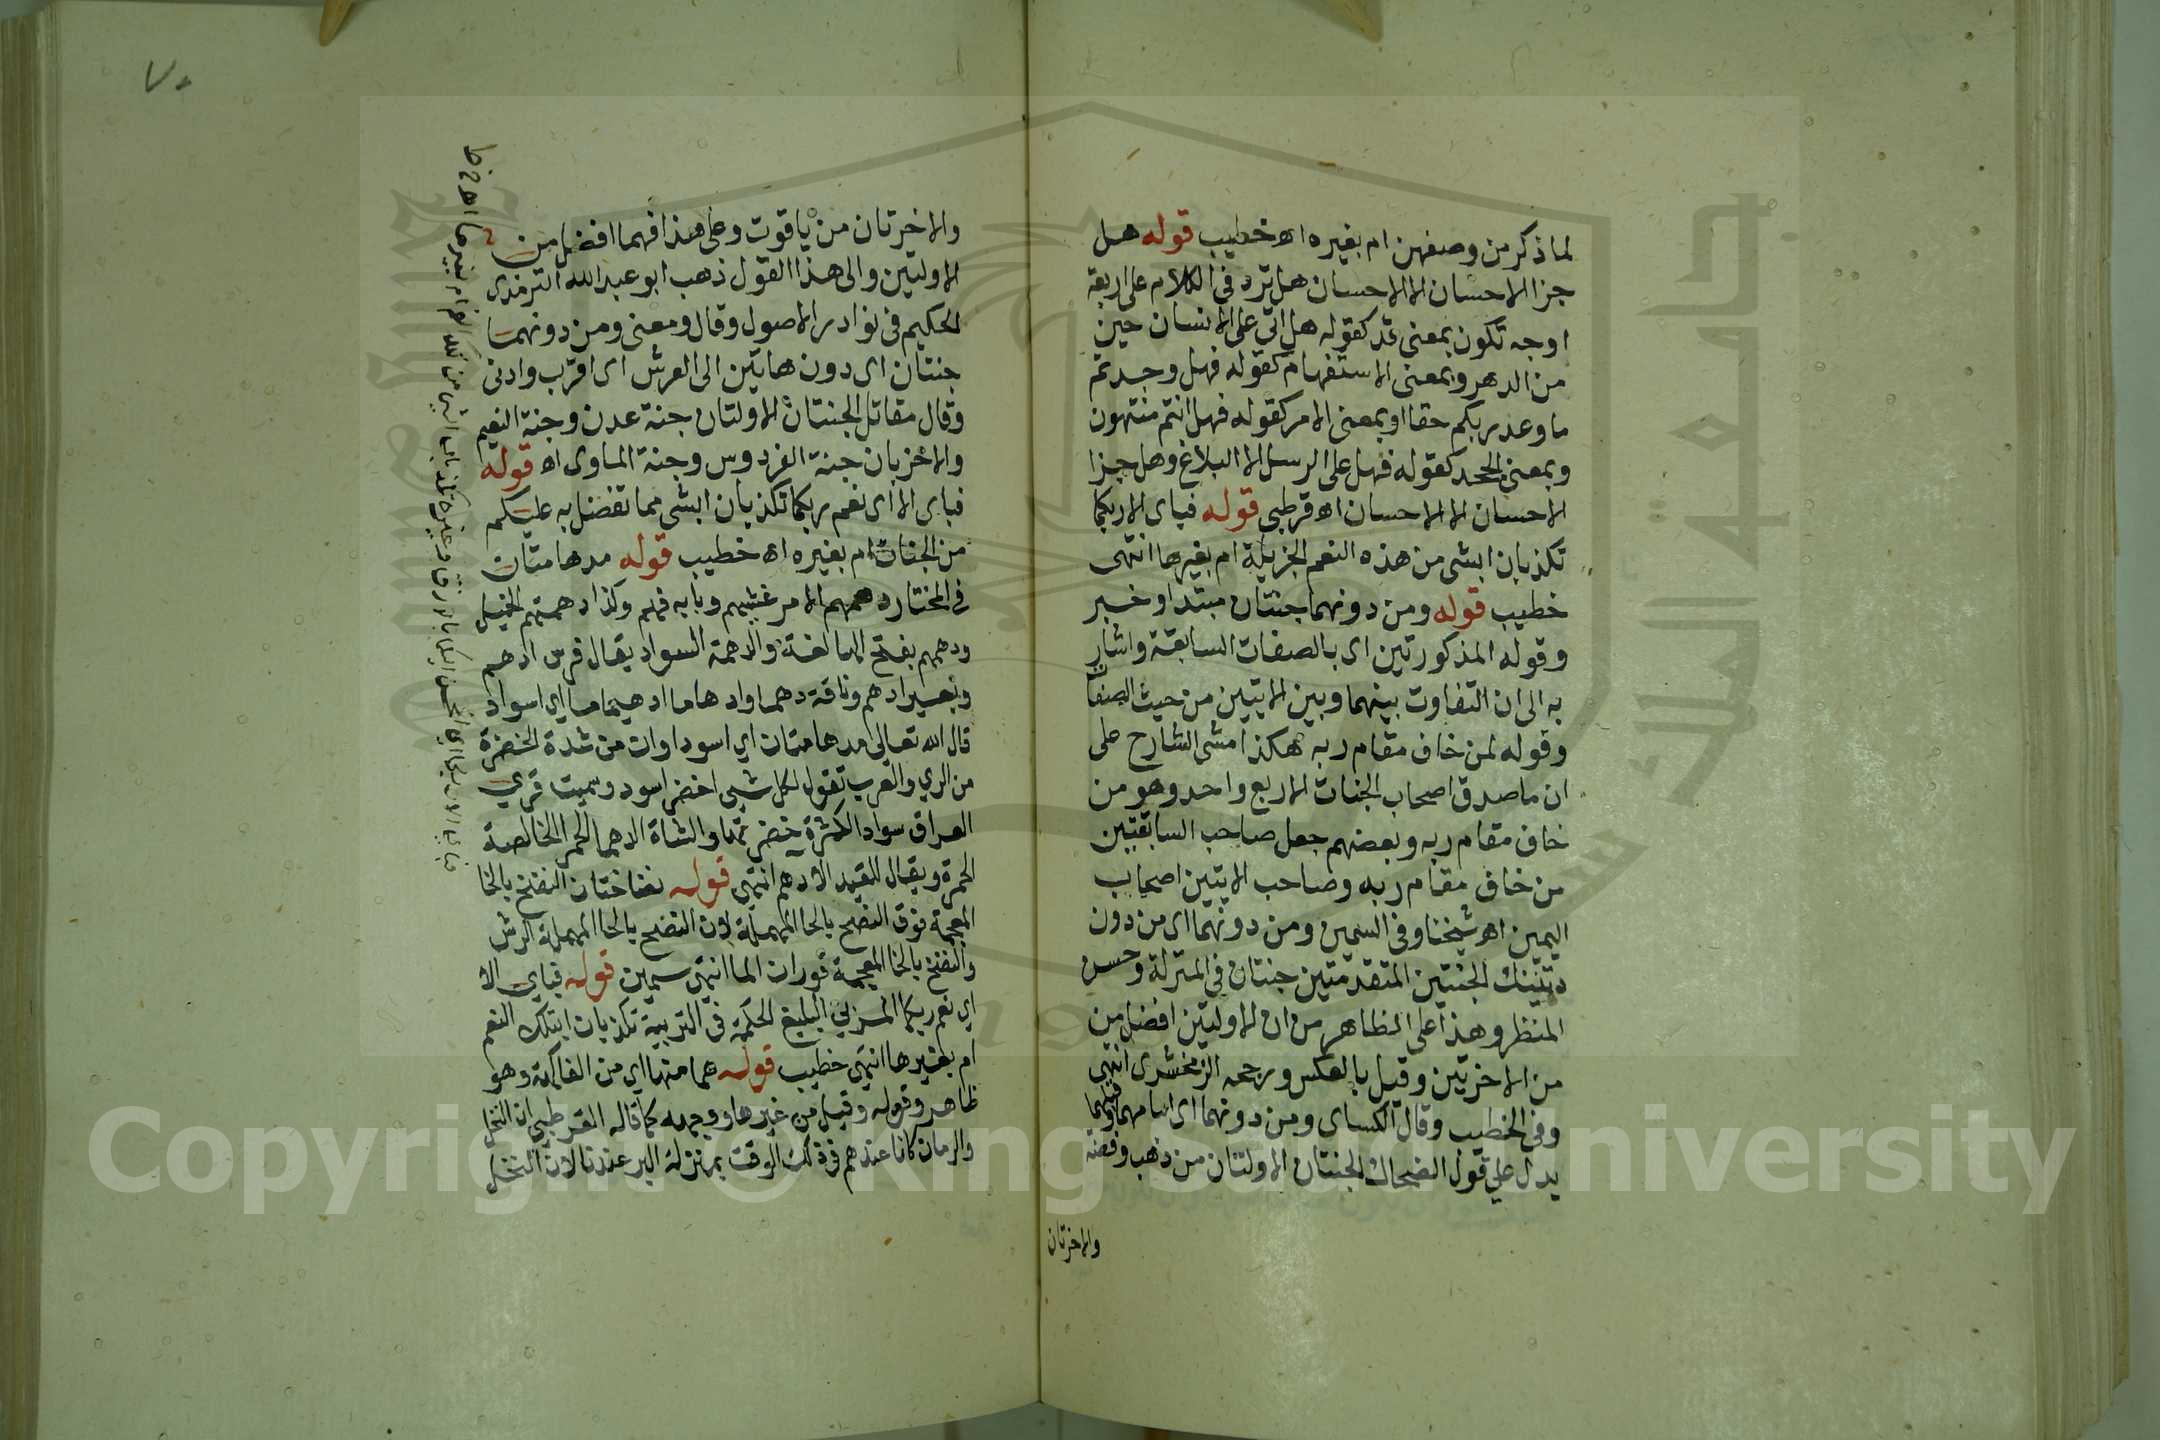 لما ذكر من وصفهن ام بغيره اه خطيب قوله هل
جزا الاحسان الا الاحسان هل ترد في الكلام على اربعة
اوجه تكون بمعنى قد كقوله هل اتى على الانسان حين
من الدهر وبمعنى الاستفهام كقوله فهل وجدتم
ما وعد ربكم حقا وبمعنى الامر كقوله فهل انتم منتهون
وبمعنى الجحد كقوله فهل على الرسل الا البلاغ وهل جزا
الاحسان الا الاحسان اه قرطبي قوله فباى الا ربكما
تكذبان ابشى من هذه النعم الجزيلة ام بغيرها انتهى
خطيب قوله ومن دونهما جنتان مبتدا وخبر
وقوله المذكورتين اى بالصفات السابقة واشار
به الى ان التفاوت بينهما وبين الايتين من حيث الصفات
وقوله لمن خاف مقام ربه هكذا مشى الشارح على
ان ما صدق اصحاب الجنات الاربع واحد وهو من
خاف مقام ربه وبعضهم جعل صاحب السابقتين
من خاف مقام ربه وصاحب الايتين اصحاب
اليمين اه شيخنا وفى السمين ومن دونهما اى من دون
تينك الجنتين المتقدمتين جنتان فى المنزلة وحسن
المنظر وهذا على الظاهر من ان الاوليتين افضل من
من الاخريتين وقيل بالعكس ورجحه الزمخشرى انتهى
وفى الخطيب وقال الكساى ومن دونهما اى امامهما وقبلهما
يدل على قول الضحاك الجنتان الاولتان من ذهب وفضة
والاخرتان
٧٠
والاخرتان من ياقوت وعلى هذا فهما افضل من
الاوليتين والى هذا القول ذهب ابو عبد الله الترمذى
الحكيم فى نوادر الاصول وقال ومعنى ومن دونهما
جنتان اى دون هاتين الى العرش اى اقرب وادنى
وقال مقاتل الجنتان الاولتان جنة عدن وجنة النعيم
والاخريان جنة الفردوس وجنة الماوى اه قوله
فباى الا اى نعم ربكما تكذبان ابشى مما تفضل به عليكم
من الجنان ام بغيره اه خطيب قوله مدهامتان
فى المختار دهمهم الامر غشيهم وبابه فهم وكذا دهمتهم الخيل
ودهمهم بفتح الها لغة والدهمة السواد يقال فرس ادهم
وبعير ادهم وناقة دهما وادهاما ادهيماما اي اسواد
قال الله تعالى مدهامتان اي اسوداوان من شدة الخضرة
من الري والعرب تقول لكل شي اخضر اسود وسميت قري
العراق سواد الكثرة خضرتها والشاة الدهما الحمرا الخالصة
الحمرة ويقال للقيد الادهم انتهى قوله نضاختان النضخ بالخا
المعجمة فوق النضح بالحا المهملة لان النضح بالحا المهملة الرش
والنضخ بالخا المعجمة فوران الما انتهى سمين قوله فباي الا
اي نعم ربكما المربي البليغ الحكمة فى التربية تكذبان ابتلك النعم
ام بغيرها انتهى خطيب قوله هما منها اي من الفاكهة وهو
ظاهر وقوله وقيل من غيرها ووجهه كما قاله القرطبي ان النخل
والرمان كانا عندهم فى ذلك الوقت بمنزلة البر عندنا لان النخل
Copyright © King Saud University